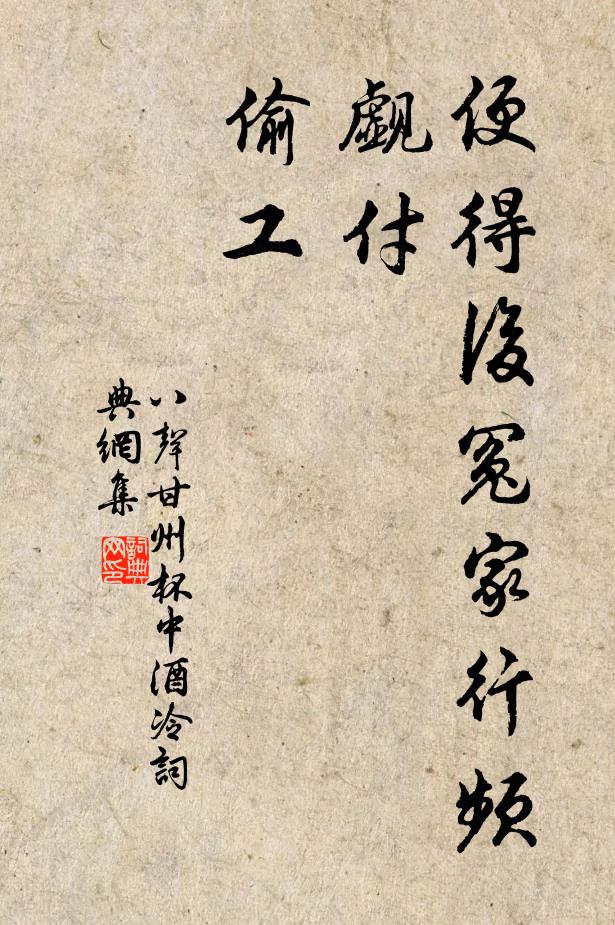 便得後冤家行頻
覷付
偷工
八聲甘州杯中酒冷詞
典網集
詞典
网印